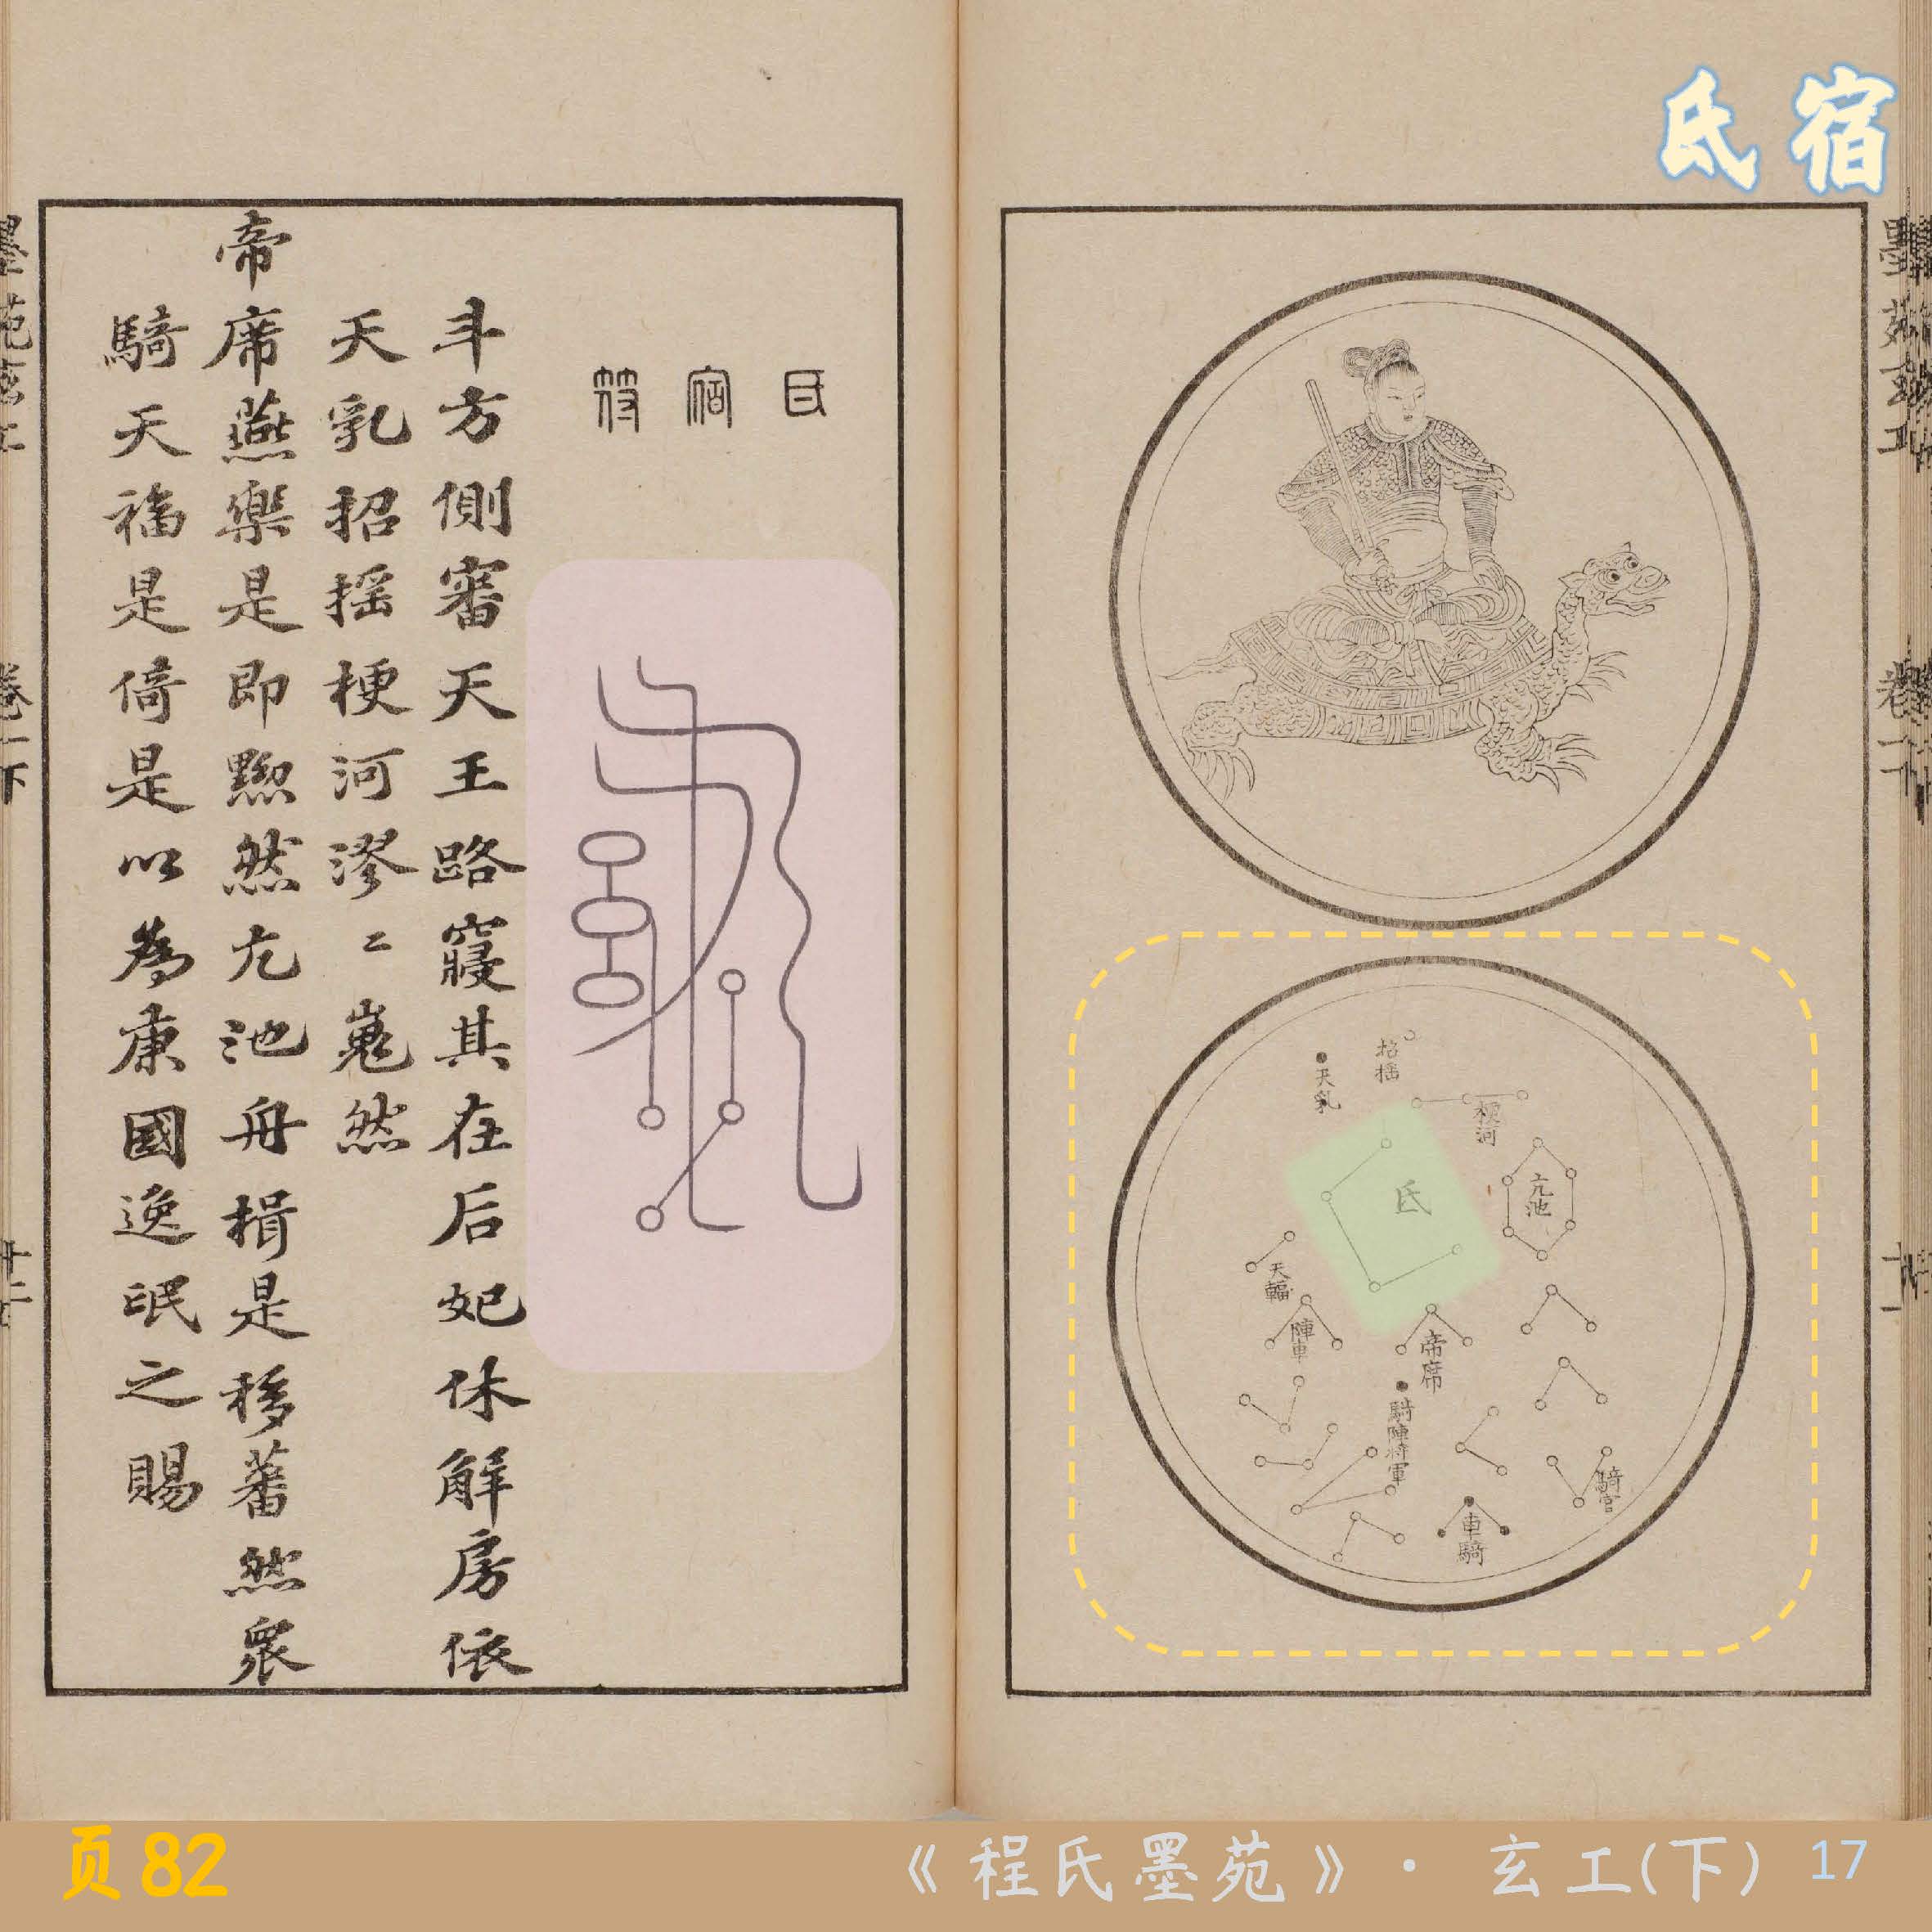 氐宿
招摇
天乳
梗河
氐
亢池
天輻
陣車
帝席
騎陣将軍
騎官
車騎
氐宿符
斗方側審天王路寢其在后妃休解房依
天乳招摇梗河漻二嵬然
帝席燕樂是即黝然亢池舟楫是移蕃然衆
騎天福是倚是以為康國逸氓之賜
墨苑玄工
卷一下
十二
页82
《程氏墨苑》·玄工(下) 17